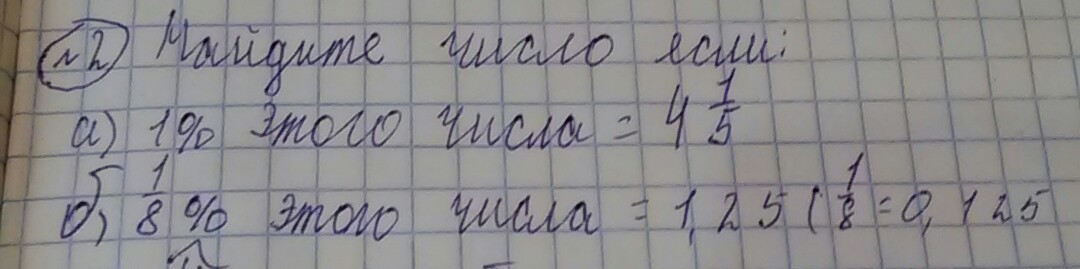 №2 Найдите число если:
а) 1% этого числа = 4 1/5
б) 1/8 % этого числа = 1,25 (1/8 = 0,125